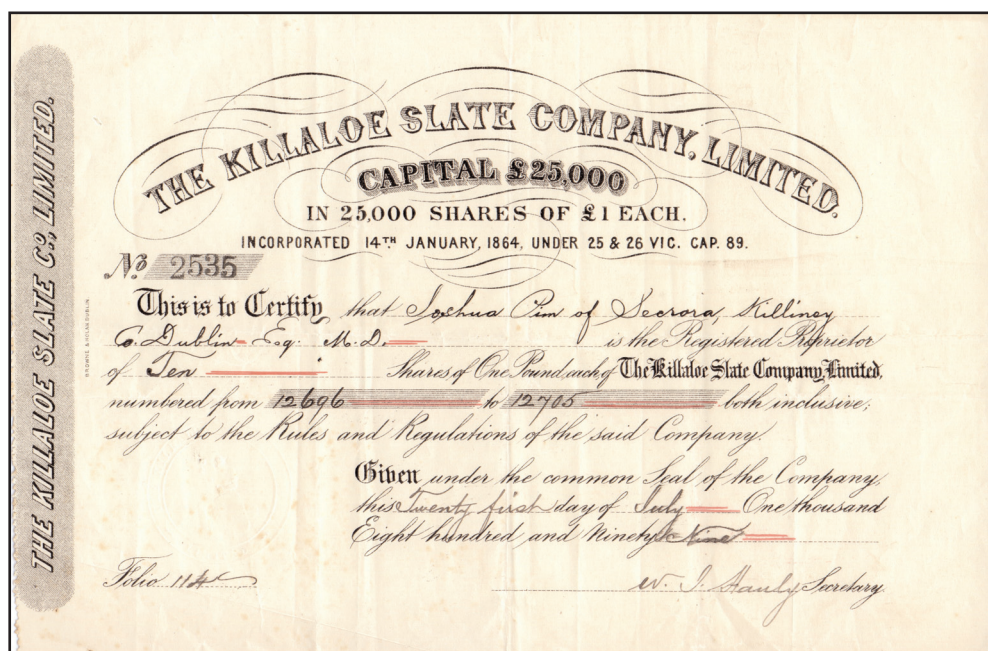 THE KILLALOE SLATE Co., LIMITED.
THE KILLALOE SLATE COMPANY, LIMITED.
CAPITAL £25,000
IN 25,000 SHARES OF £1 EACH.
INCORPORATED 14TH JANUARY, 1864, UNDER 25 & 26 VIC. CAP. 89.
No 2535
This is to Certify that Joshua Pim of Secrora, Killiney
Co. Dublin Esq. M.D. is the Registered Proprietor
of Ten Shares of One Pound each of The Killaloe Slate Company, Limited,
numbered from 12696 to 12705 both inclusive;
subject to the Rules and Regulations of the said Company.
Given under the common Seal of the Company,
this Twenty first day of July One thousand
Eight hundred and Ninety Nine
Folio 114 W. J. Secretary.